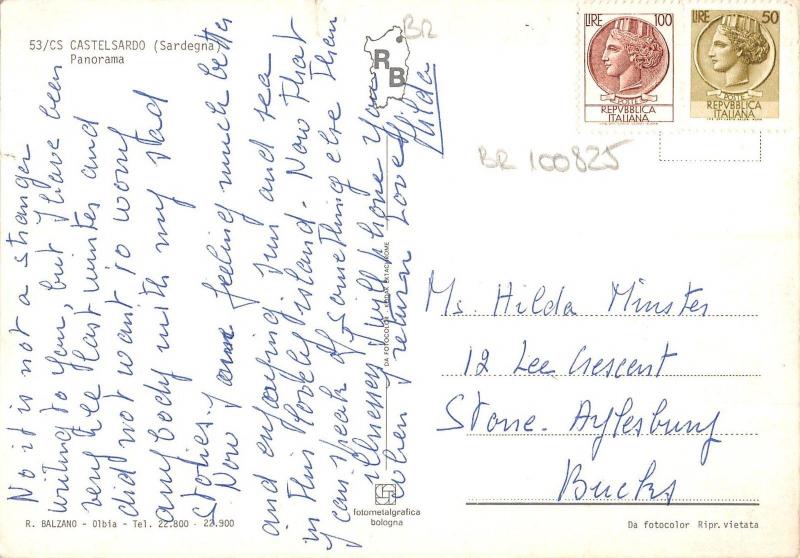 53/CS CASTELSARDO (Sardegna)
Panorama
No it is not a stranger
writing to you, but I have been
very ill last winter and
did not want to worry
anybody with my sad
stories.
Now I am feeling much better
and enjoying sun and sea
in this lovely island. Now that
I can speak of something else than
illnesses I will phone you
when I return Love
Hilda
BR
RB
LIRE 100
POSTE
REPVBBLICA
ITALIANA
LIRE 50
POSTE
REPVBBLICA
ITALIANA
BR 100825
Ms. Hilda Minster
12 Lee Crescent
Stone. Aylesbury
Bucks
DA FOTOCOLOR - KODAK EKTACHROME
fotometalgrafica
bologna
R. BALZANO - Olbia - Tel. 22.800 - 22.900
Da fotocolor Ripr. vietata